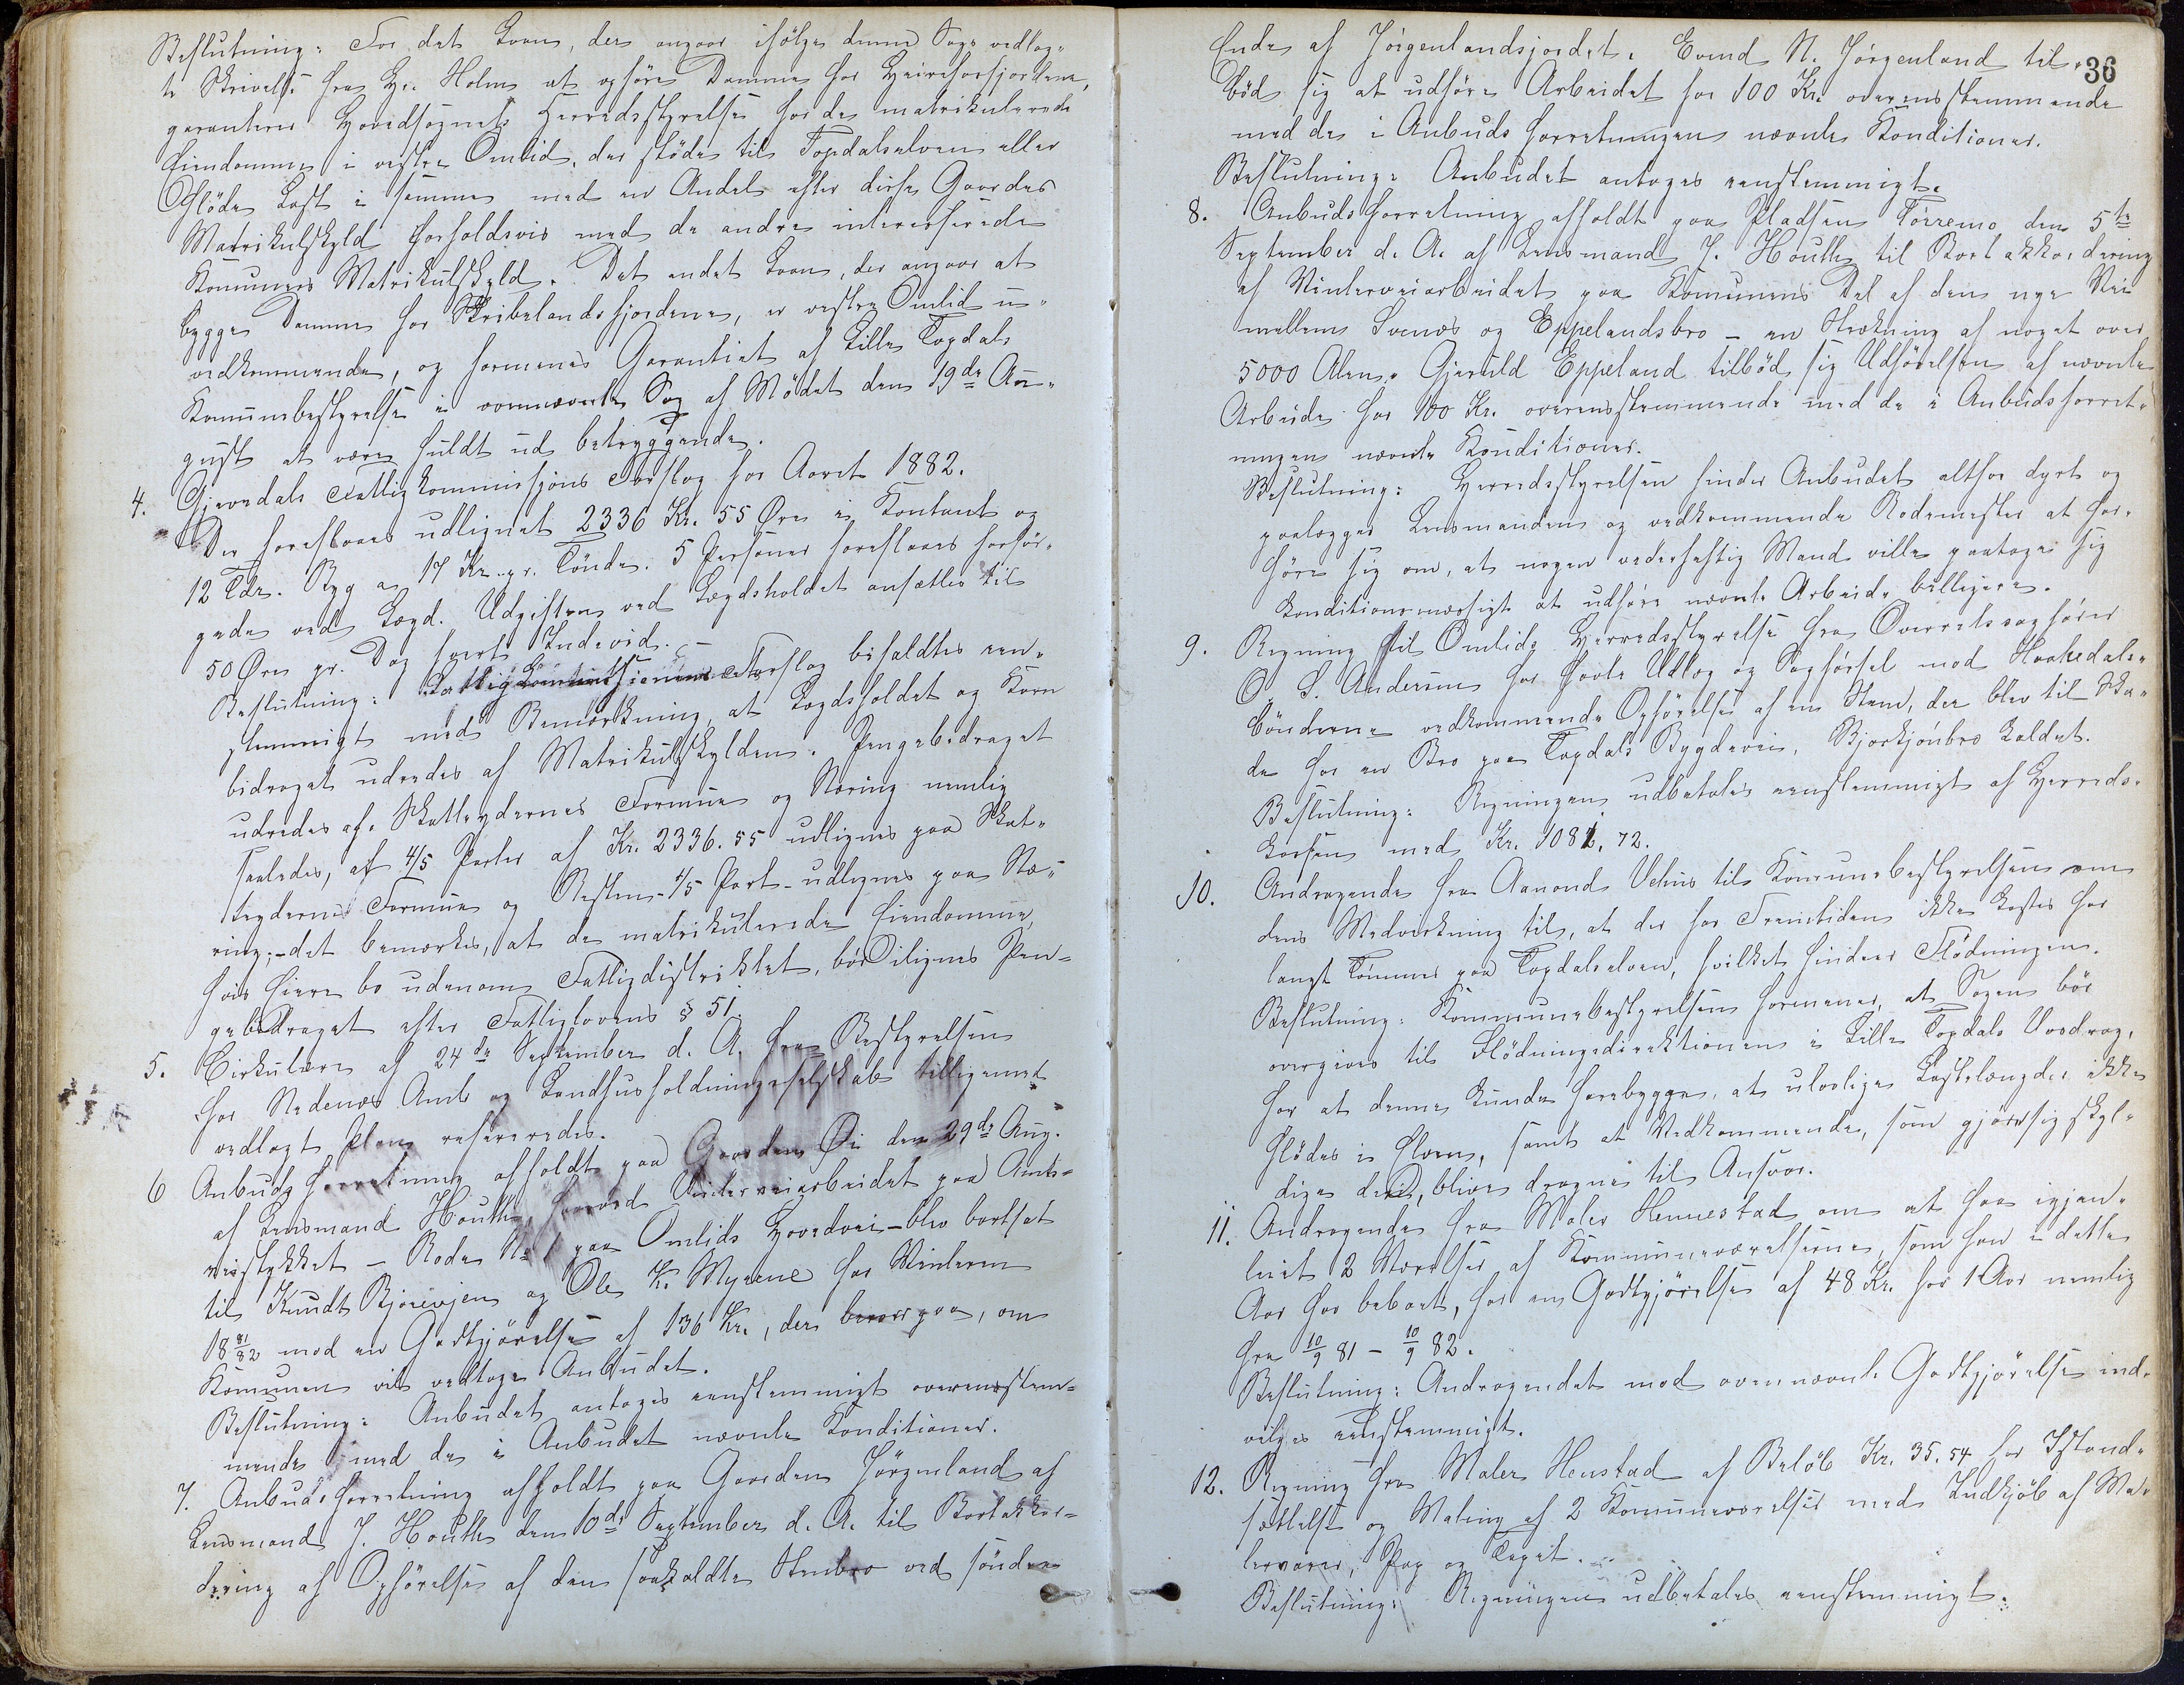 Beslutning: For det Laan, der angaar ifölge denne Sag vedlag-
te Skrivelse fra Hr. Holm at opføre Damme for Heireforsfjordene,
garanterer Hovedsognets Herredsstyrelse for de matrikulerede
Eiendomme i vestre Omlid, der støde til Topdalselven eller
fløde Last i samme med en Andel efter disse Gaardes
Matrikulskyld forholdsvis med de andre interesserede
Komuners Matrikulskyld. Det andet Laan, der angaar at
bygge Damme for Skribelandsfjordene, er vestre Omlid u-
vedkommende, og formenes Garantiet af Lille Topdals
Komunebestyrelse i ovennævnte Sag af Mødet den 19de Au-
gust at være fuldt ud betryggende.
4. Gjevedals Fattigkommissjons Forslag for Aaret 1882.
Der foreslaaes udlignet 2336 Kr. 55 Øre i Kontant og
12 Tdr. Byg a 17 Kr. pr. Tönde. 5 Personer foreslaaes forsör-
gede ved Lægd. Udgiften ved Lægdsholdet ansættes til
50 Öre pr. Dag hvert Individ. –
Beslutning: Fattigkommissionens Forslag bifaldtes een-
stemmigt med Bemærkning, at Lægdsholdet og Korn
bidraget udredes af Matrikulskylden. Pengebidraget
udredes af Skatteydernes Formue og Næring nemlig
saaledes, at 4/5 Parter af Kr. 2336.55 udlignes paa Skat-
teydernes Formue og Resten - 1/5 Part - udlignes paa Næ-
ring; - det bemærkes, at de matrikulerede Eiendomme,
hvis Eiere bo udenom Fattigdistriktet, bör ilignes Pen-
gebidraget efter Fattiglovens § 51.
5. Cirkulære af 24de September d. A. fra Bestyrelsen
for Nedenæs Amts Landhusholdningsselskab tilligemed
vedlagt Plan refereredes.
6 Anbudsforretning afholdt paa Gaarden Öi den 29de Aug.
af Lensmand Houth, hvorved Vinterveiarbeidet paa Amts-
veistykket - Rode No 1 paa Omlids Hovedvei - blev bortsat
til Knudt Bjorevjen og Ole K. Myrene for Vinteren
18 81/82 mod en Godtgjörelse af 136 Kr., der beror paa, om
Komunen vil vedtage Anbudet.
Beslutning: Anbudet antages eenstemmigt overensstem-
mende med de i Anbudet nævnte Konditioner.
7. Anbudsforretning afholdt paa Gaarden Jörgenland af
Lensmand J. Houth den 10de September d. A. til Bortakkor-
dering af Opförelse af den saakaldte Stenbro ved söndre
36
Ende af Jörgenlandsjordet. Evend N. Jörgenland til-
böd sig at udföre Arbeidet for 100 Kr. overensstemmende
med de i Anbudsforretningen nævnte Konditioner.
Beslutning: Anbudet antages eenstemmigt.
8. Anbudsforretning afholdt paa Pladsen Törremo den 5te
September d. A. af Lensmand J. Houth til Bortakkordering
af Vinterveiarbeidet paa Komunens Del af den nye Vei
mellem Svenæs og Eppelandsbro - en Strækning af noget over
5000 Alen. Gjeruld Eppeland tilböd sig Udförelsen af nævnte
Arbeide for 100 Kr. overensstemmende med de i Anbudsforret-
ningen nævnte Konditioner.
Beslutning: Herredsstyrelsen finder Anbudet altfor dyrt og
paalægges Lensmanden og vedkommende Rodemester at for-
höre sig om, at nogen vederheftig Mand ville paatage sig
konditionsmæssigt at udföre nævnte Arbeide billigere.
9. Regning til Omlids Herredsstyrelse fra Overretssagförer
O. S. Andersen for havte Udlæg og Sagförsel mod Haakedals-
bönderne vedkommende Opförelse af en Stem, der blev til Ska-
de for en Bro paa Topdals Bygdevei, Bjorkjönbro kaldet.
Beslutning: Regningen udbetales eenstemmigt af Herreds-
kassen med Kr. 1081.72.
10. Andragende fra Aanond Vehus til Komunebestyrelsen om
dens Medvirkning til, at der for Fremtiden ikke kastes for
langt Tömmer paa Topdalselven, hvilket hindrer Flödningen.
Beslutning: Kommunebestyrelsen formener, at Sagen bör
overgives til Flödningsdirektionen i Lille Topdals Vasdrag,
for at denne kunde forebygge, at ulovlige Lastelængder ikke
flödes i Elven, samt at Vedkommende, som gjöre sig skyl-
dige deri, blive dragne til Ansvar.
11. Andragende fra Maler Hennestad om at faa igjen-
leiet 2 Værelser af Kommuneværelserne, som han i dette
Aar har beboet, for en Godtgjörelse af 48 Kr. for 1 Aar nemlig
fra 10/9 81 - 10/9 82.
Beslutning: Andragendet mod ovennævnte Godtgjörelse ind-
vilges eenstemmigt.
12. Regning fra Maler Henstad af Belöb Kr. 35.54 for Istand-
sættelse og Maling af 2 Komuneværelser med Indkjöb af Ma-
lervarer, Pap og Tapet.
Beslutning: Regningen udbetales eenstemmigt.